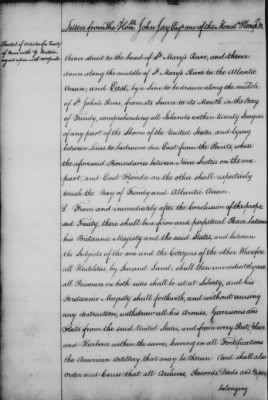 Letter from the Honble. John Jay Esqr. one of the Minist. Plenipo. &c
Receipt of Articles for Treaty
of Peace with G. Britain
agreed upon but
thence strait to the head of St. Mary's River, and thence
down along the middle of St. Mary's River to the Atlantic
Ocean; and East, by a Line to be drawn along the middle
of St. John's River, from its Source to its Mouth in the Bay
of Fundy, comprehending all Islands within twenty Leagues
of any part of the Shores of the United States, and lying
between Lines to be drawn due East from the Points, where
the aforesaid Boundaries between Nova Scotia on the one
part, and East Florida on the other shall respectively
touch the Bay of Fundy and Atlantic Ocean.
From and immediately after the Conclusion of the propo
sed Treaty, there shall be a firm and perpetual Peace between
his Britannic Majesty and the said States, and between
the Subjects of the one and the Citizens of the other Wherefore
all Hostilities, by Sea and Land, shall then immediately cease,
all Prisoners on both sides shall be set at Liberty, and his
Britannic Majesty shall forthwith, and without causing
any destruction, withdraw all his Armies, Garrisons and
Fleets from the said United States, and from every Port, Place
and Harbour within the same, leaving in all Fortifications
the American Artillery that may be therein And shall also
order and Cause that all Archives, Records, Deeds and Papers
belonging